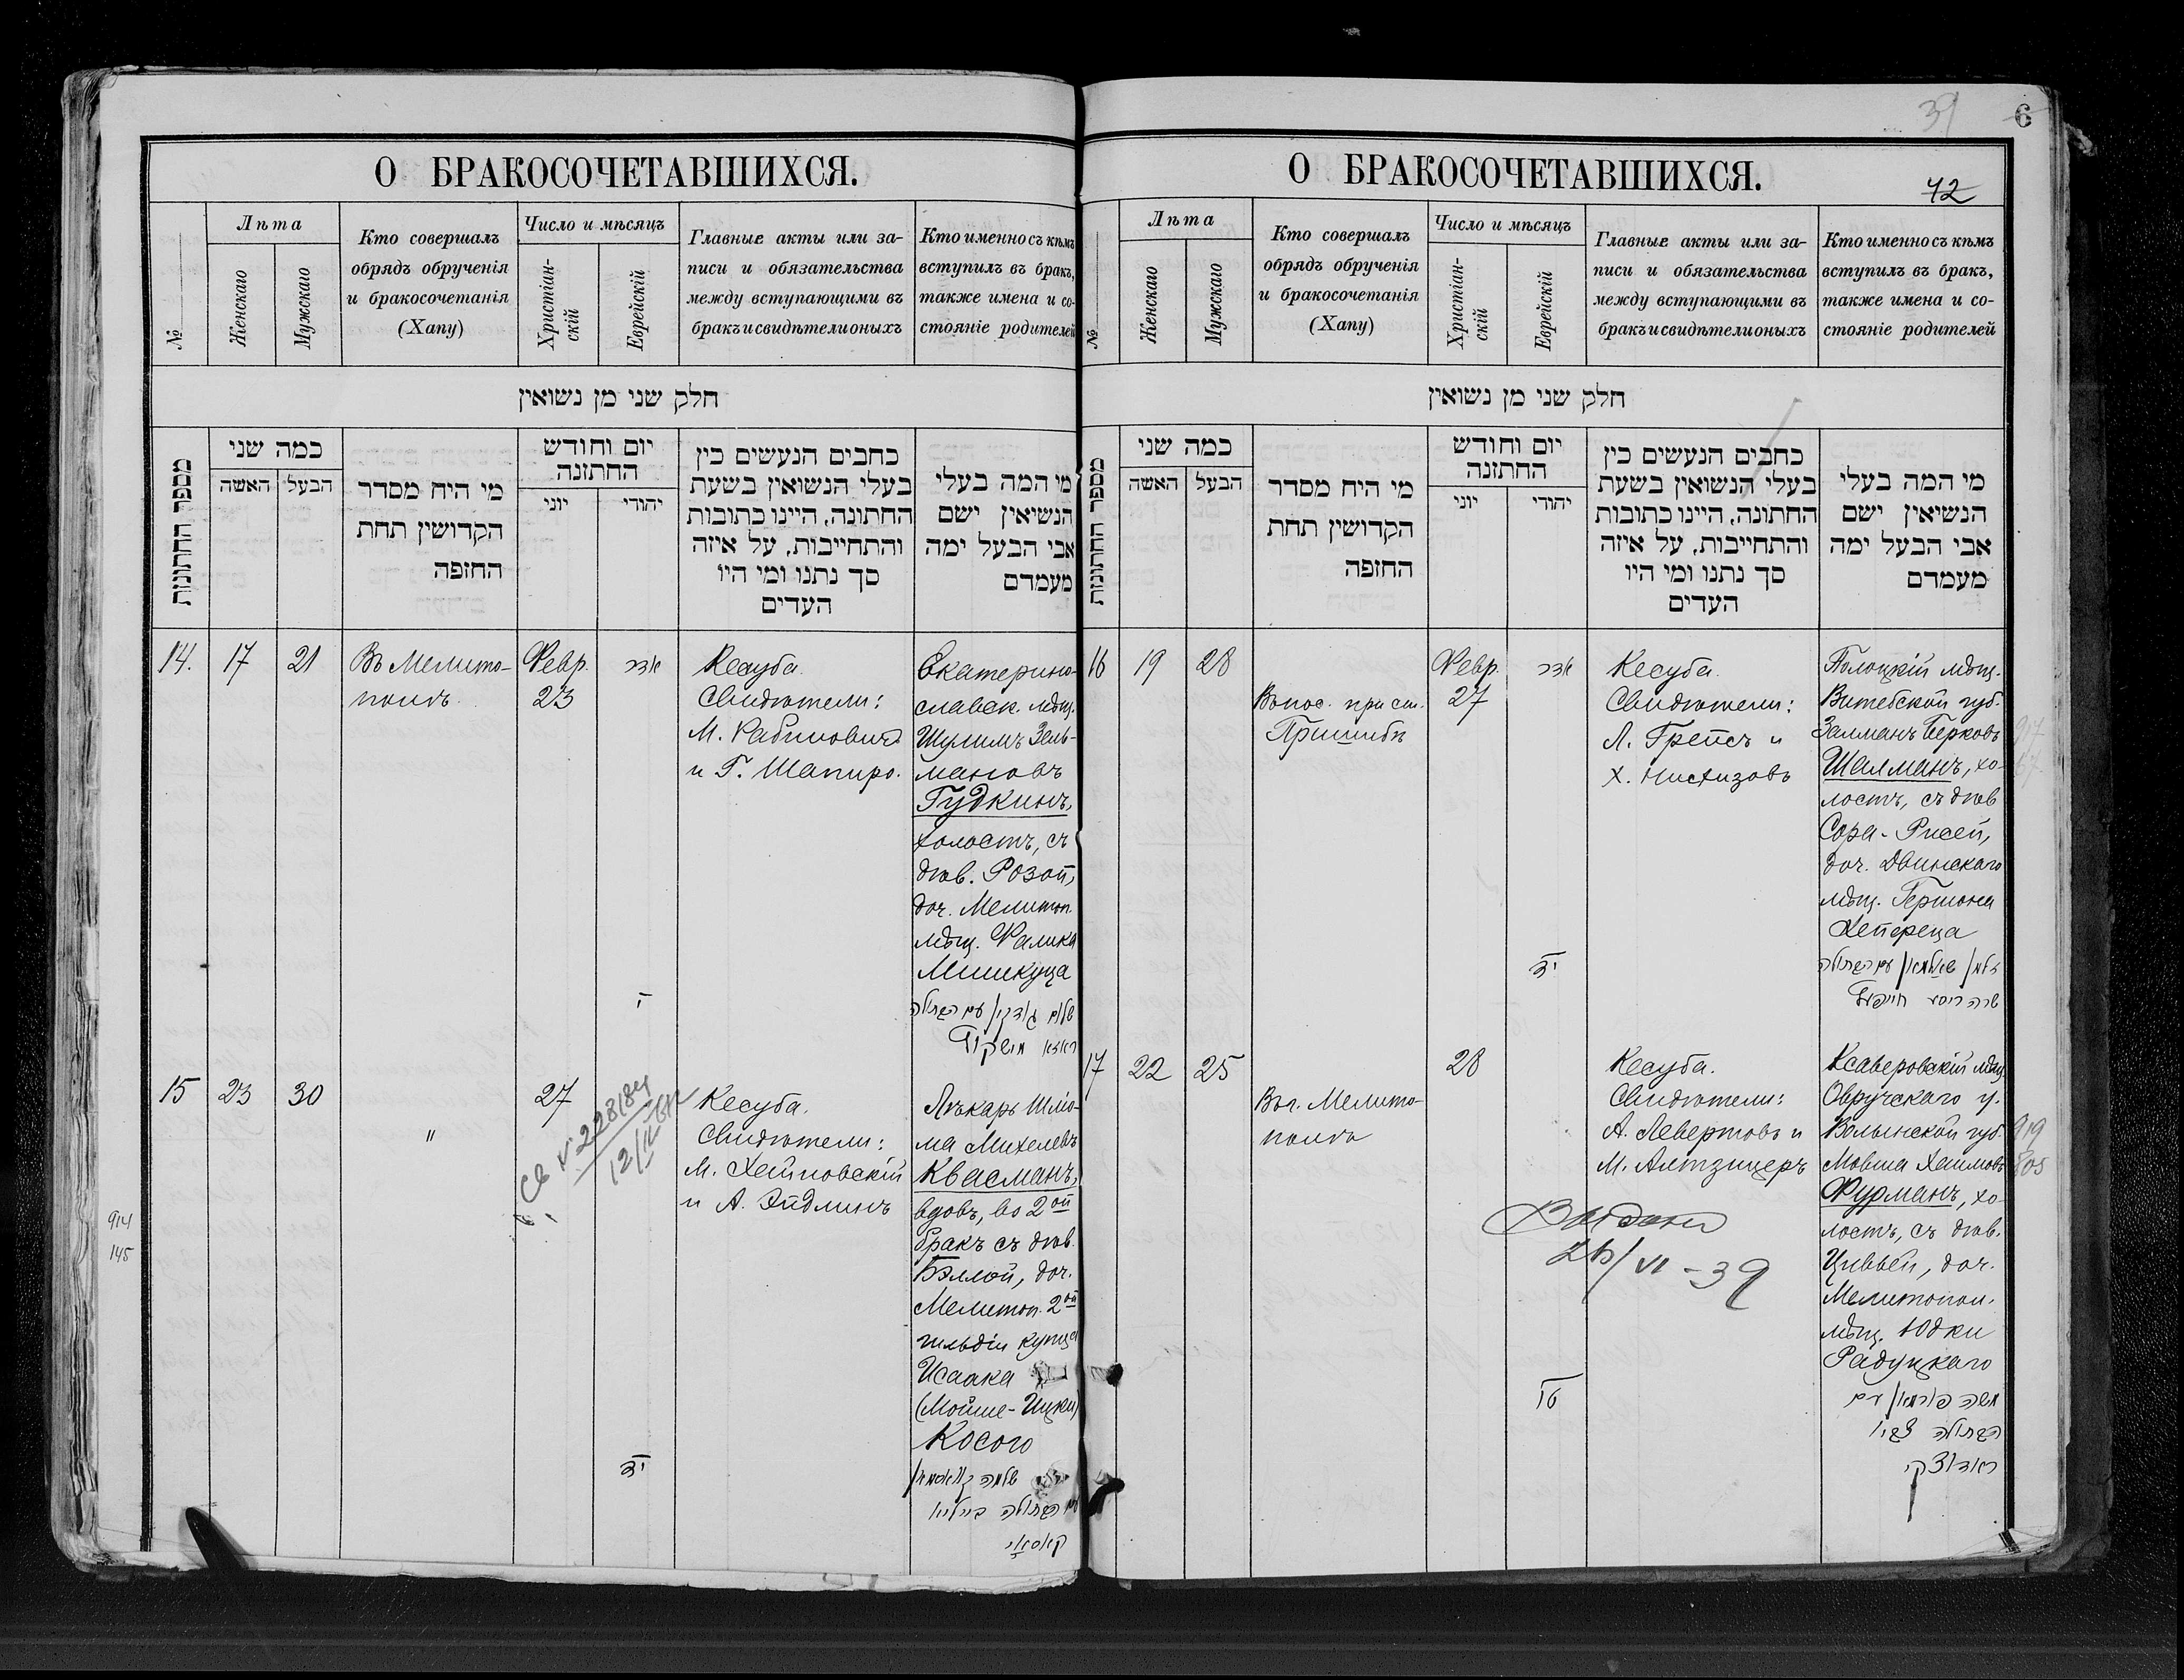 О БРАКОСОЧЕТАВШИХСЯ.
№
Лѣта
Женскаго
Мужскаго
Кто совершалъ
обрядъ обрученія
и бракосочетанія
(Хапу)
Число и мѣсяцъ
Христіан-
скій
Еврейскій
Главные акты или за-
писи и обязательства
между вступающими въ
бракъ и свидѣтели оныхъ
Кто именно съ кѣмъ
вступилъ въ бракъ,
также имена и со-
стояніе родителей
חלק שני מן נשואין
מספר החתונות
כמה שני
האשה
הבעל
מי היה מסדר
הקדושין תחת
החופה
יום וחודש
החתונה
יוני
יהודי
כתבים הנעשים בין
בעלי הנשואין בשעת
החתונה, היינו כתובות
והתחייבות, על איזה
סך נתנו ומי היו
העדים
מי המה בעלי
הנשיאין ישם
אבי הבעל ימה
מעמדם
14.
17
21
Въ Мелито-
полѣ
Февр.
23
אדר
י
Кесуба.
Свидѣтели:
М. Рабиновичъ
и Г. Шапиро.
Екатерино-
славск. мѣщ.
Шулимъ Зель-
мановъ
Гудкинъ,
холостъ, съ
дѣв. Розой,
доч. Мелитоп.
мѣщ. Фалика
Мишкуца
שלום גודקין עם הבתולה
ראזא מישקוץ
15
23
30
"
27
יד
Св №228184
12/II
Кесуба.
Свидѣтели:
М. Хейповскій
и А. Эйдлинъ
Лѣкарь Шлио-
ма Михелевъ
Квасманъ,
вдовъ, во 2ой
бракъ съ дѣв.
Бэллой, доч.
Мелитоп. 2ой
гильдіи купца
Исаака
(Мойше-Ицки)
Косого
שלמה קוואסמאן
עם הבתולה ביילא
קאסאי
914
145
39
6
42
О БРАКОСОЧЕТАВШИХСЯ.
№
Лѣта
Женскаго
Мужскаго
Кто совершалъ
обрядъ обрученія
и бракосочетанія
(Хапу)
Число и мѣсяцъ
Христіан-
скій
Еврейскій
Главные акты или за-
писи и обязательства
между вступающими въ
бракъ и свидѣтели оныхъ
Кто именно съ кѣмъ
вступилъ въ бракъ,
также имена и со-
стояніе родителей
חלק שני מן נשואין
מספר החתונות
כמה שני
האשה
הבעל
מי היה מסדר
הקדושין תחת
החופה
יום וחודש
החתונה
יוני
יהודי
כתבים הנעשים בין
בעלי הנשואין בשעת
החתונה, היינו כתובות
והתחייבות, על איזה
סך נתנו ומי היו
העדים
מי המה בעלי
הנשיאין ישם
אבי הבעל ימה
מעמדם
16
19
28
Въ пос. при ст.
Пришибъ
Февр.
27
אדר
יד
Кесуба.
Свидѣтели:
Л. Грейсъ и
Х. Нисхизовъ
Полоцкій мѣщ.
Витебской губ.
Залманъ Берковъ
Шалманъ, хо-
лостъ, съ дѣв
Сора-Рисей,
доч. Двинскаго
мѣщ. Гершона
Хейфеца
זלמן שאלמאן עם הבתולה
שרה ריסא חייפעץ
17
22
25
Въ г. Мелито-
полѣ
28
טו
Кесуба.
Свидѣтели:
А. Левертовъ и
М. Алтзицеръ
Выдано
26/VI-39
Ксаверовскій мѣщ.
Овручскаго у.
Волынской губ.
Мовша Хаимовъ
Фурманъ, хо-
лостъ, съ дѣв.
Цивьей, доч.
Мелитопол.
мѣщ. Юдки
Радуцкаго
משה פורמאן עם
הבתולה צביא
ראדוצקי
919
805